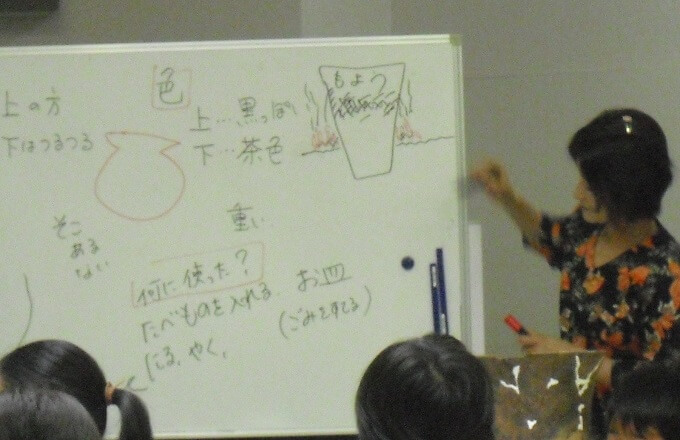 色
上の方
下はつるつる
上…黒っぽい
下…茶色
もよう
そこ
ある
ない
重い
何に使った?
たべものを入れる
にる、やく、
お皿
(ごみをすてる)